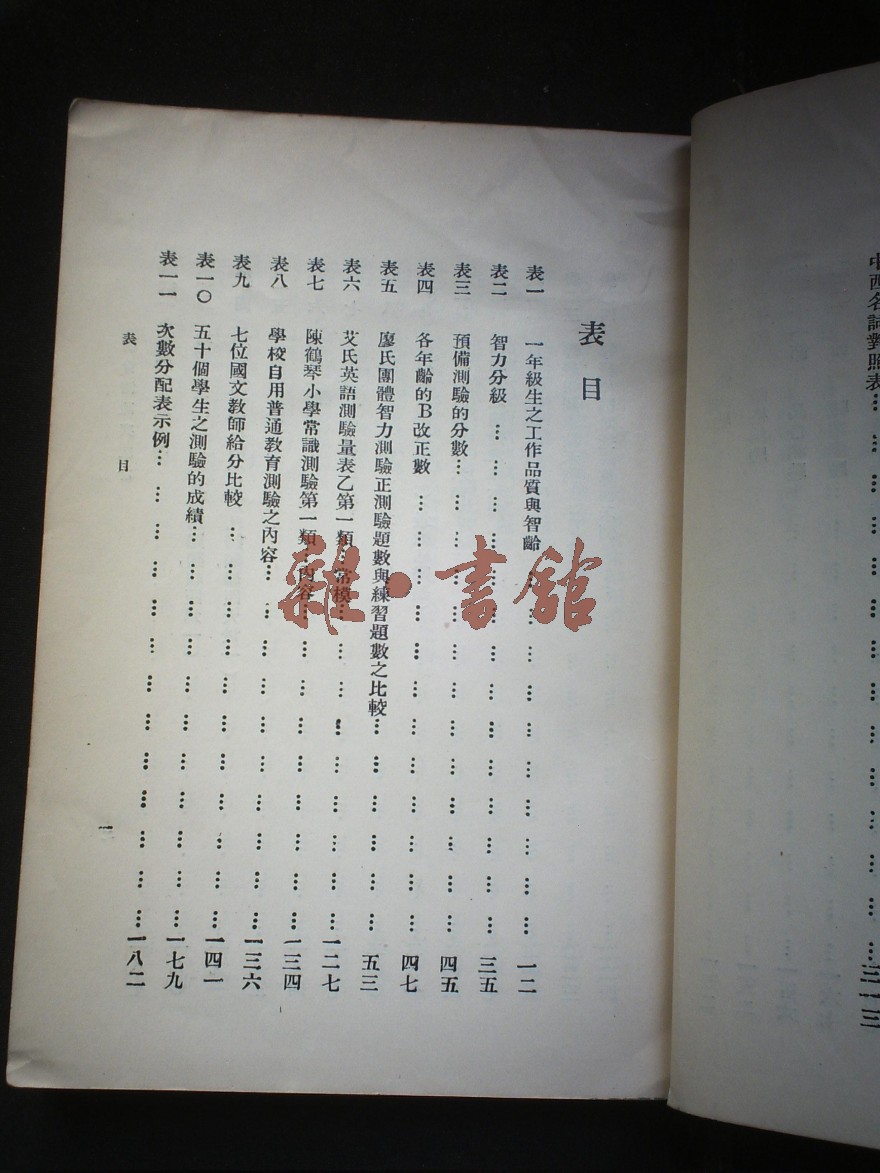 中西名詞對照表…………三一三
表目
表一 一年級生之工作品質與智齡…………一二
表二 智力分級…………三五
表三 預備測驗的分數…………四五
表四 各年齡的B改正數…………四七
表五 廖氏團體智力測驗正測驗題數與練習題數之比較…………五三
表六 艾氏英語測驗量表乙第一類常模…………一二七
表七 陳鶴琴小學常識測驗第一類內容…………一三四
表八 學校自用普通教育測驗之內容…………一三六
表九 七位國文教師給分比較…………一四一
表一〇 五十個學生之測驗的成績…………一七九
表一一 次數分配表示例…………一八二
表目
一
雜·書館